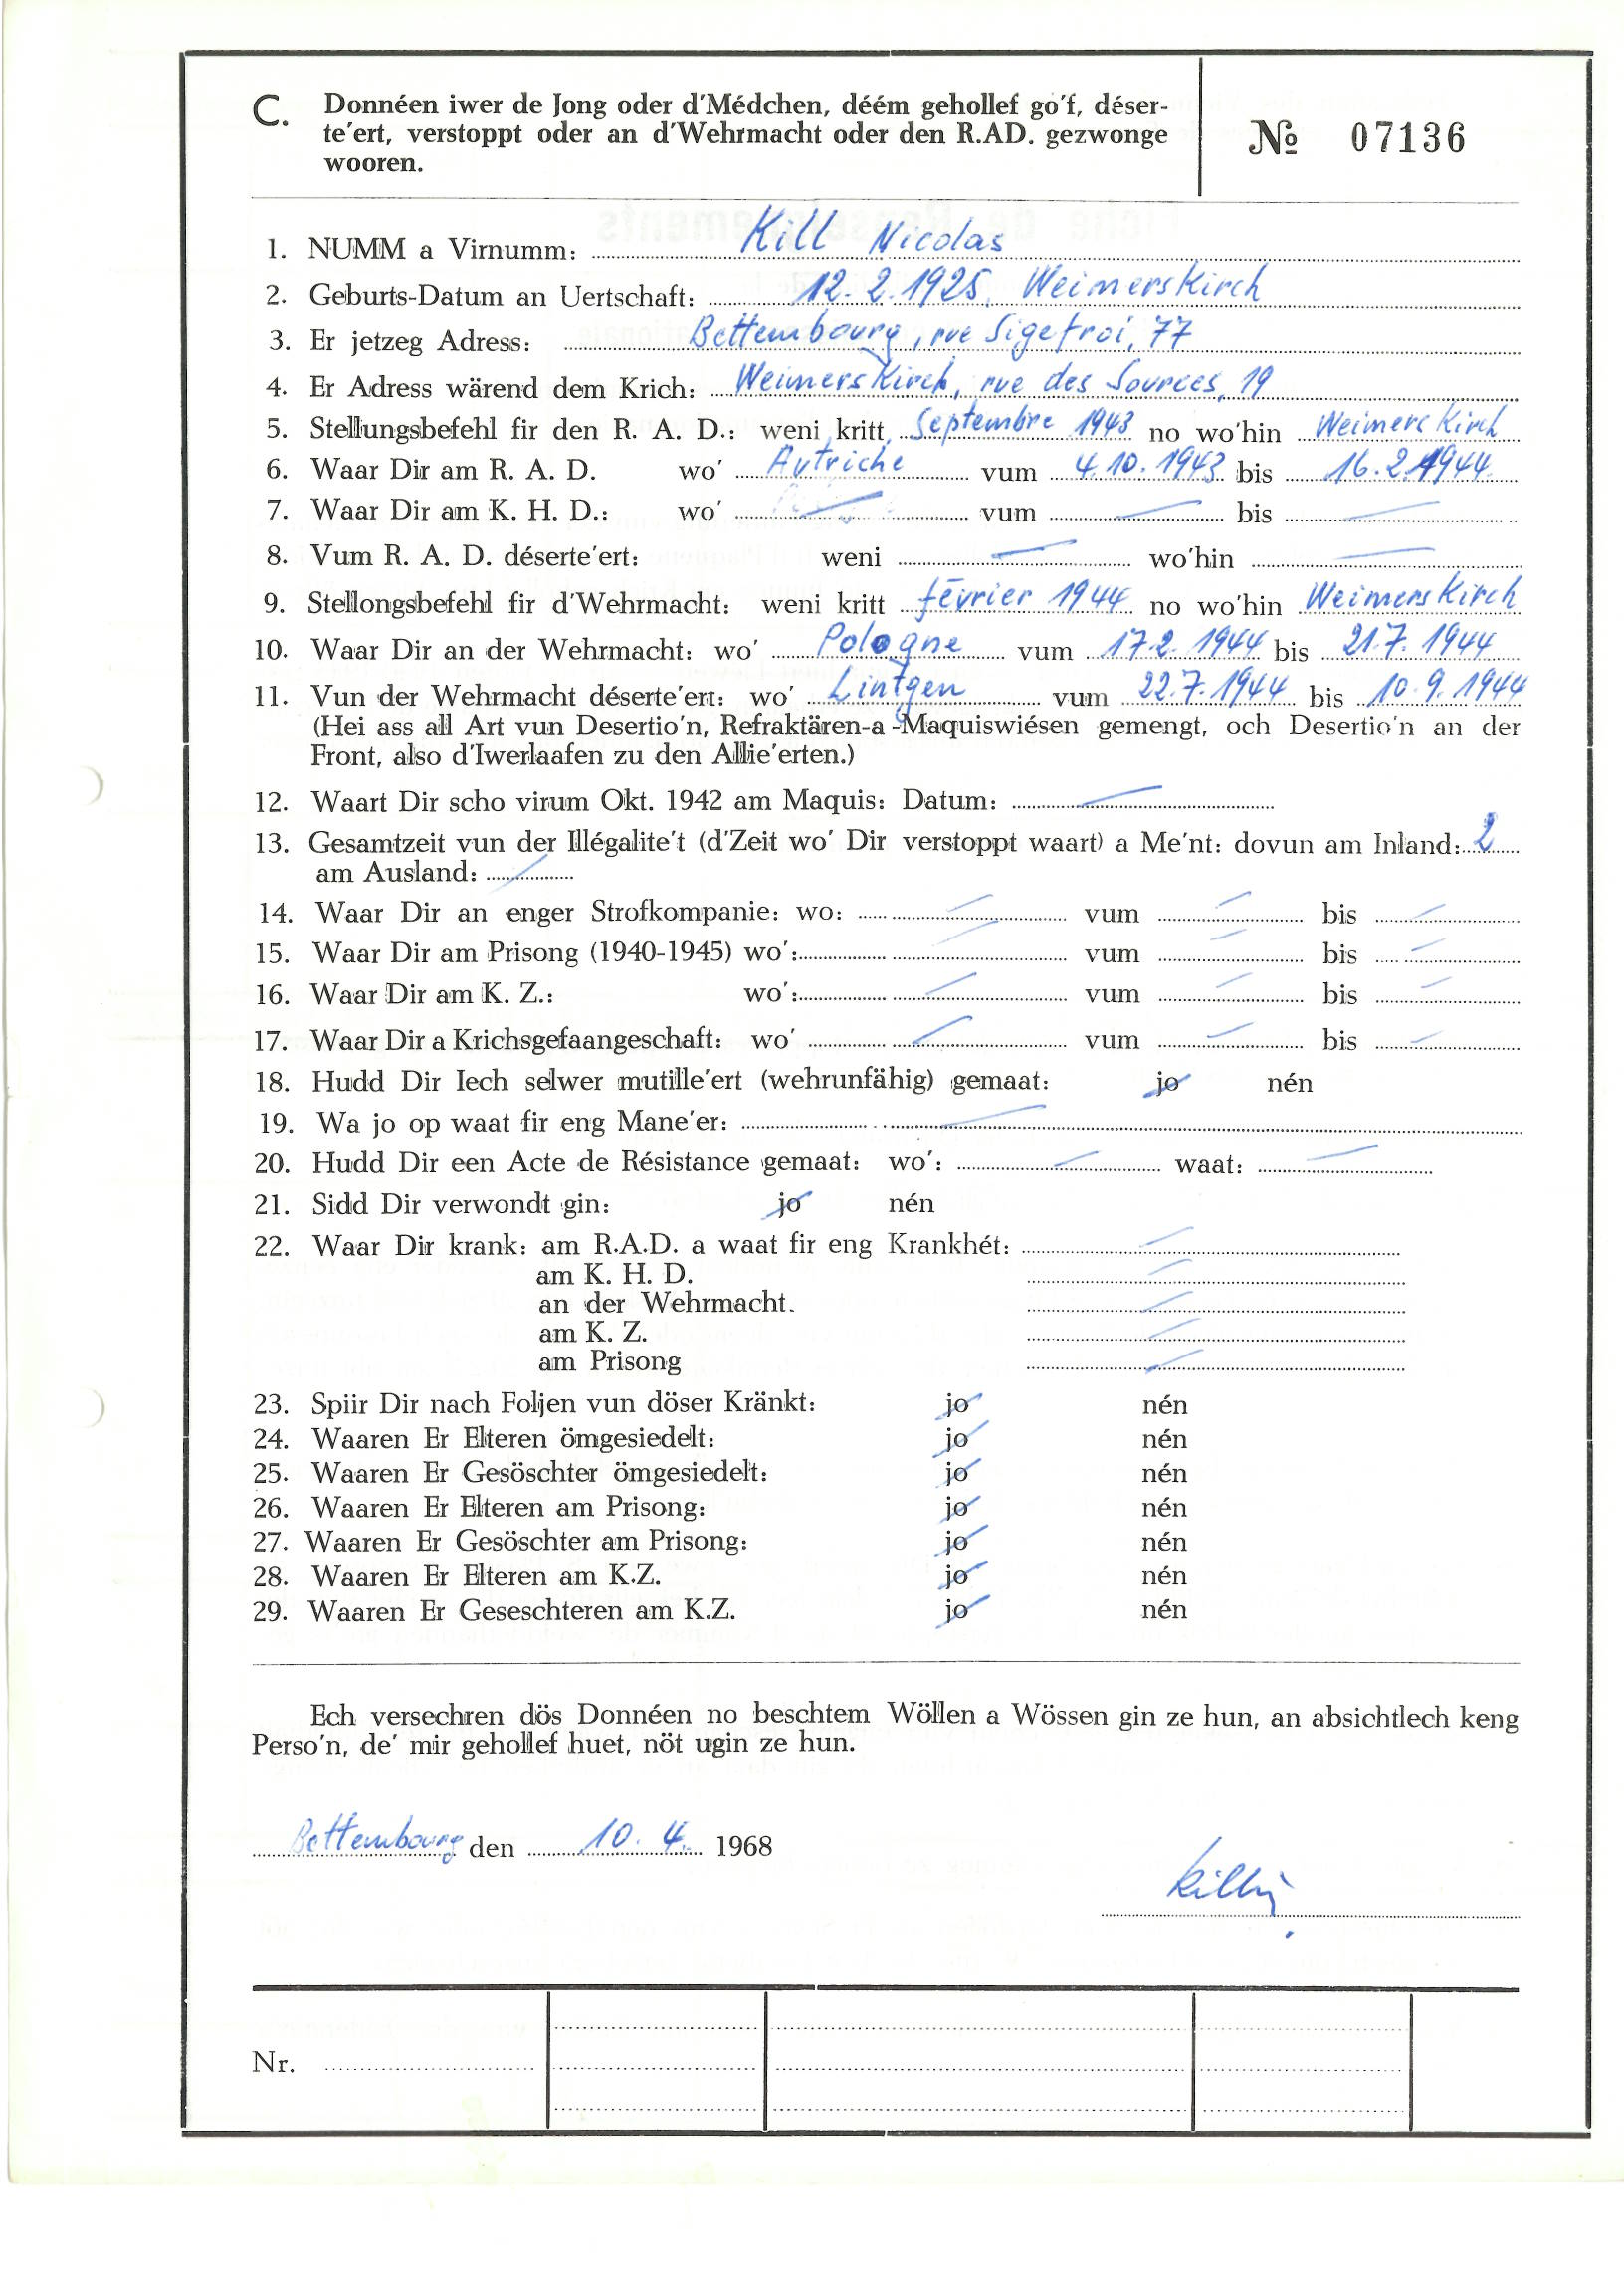 C. Donnéen iwer de Jong oder d'Médchen, déém gehollef go'f, déser-
te'ert, verstoppt oder an d'Wehrmacht oder den R.AD. gezwonge
wooren.
№ 07136
1. NUMM a Virnumm: Kill Nicolas
2. Geburts-Datum an Uertschaft: 12.2.1925, Weimerskirch
3. Er jetzeg Adress: Bettembourg, rue Sigefroi, 77
4. Er Adress wärend dem Krich: Weimerskirch, rue des Sources, 19
5. Stellungsbefehl fir den R. A. D.: weni kritt Septembre 1943 no wo'hin Weimerskirch
6. Waar Dir am R. A. D. wo' Autriche vum 4.10.1943 bis 16.2.1944
7. Waar Dir am K. H. D.: wo' — vum — bis —
8. Vum R. A. D. déserte'ert: weni — wo'hin —
9. Stellongsbefehl fir d'Wehrmacht: weni kritt février 1944 no wo'hin Weimerskirch
10. Waar Dir an der Wehrmacht: wo' Pologne vum 17.2.1944 bis 21.7.1944
11. Vun der Wehrmacht déserte'ert: wo' Lintgen vum 22.7.1944 bis 10.9.1944
(Hei ass all Art vun Desertio'n, Refraktären-a-Maquiswiésen gemengt, och Desertio'n an der
Front, also d'Iwerlaafen zu den Allie'erten.)
12. Waart Dir scho virum Okt. 1942 am Maquis: Datum: —
13. Gesamtzeit vun der Illégalite't (d'Zeit wo' Dir verstoppt waart) a Me'nt: dovun am Inland: 2
am Ausland: —
14. Waar Dir an enger Strofkompanie: wo: — vum — bis —
15. Waar Dir am Prisong (1940-1945) wo': — vum — bis —
16. Waar Dir am K. Z.: wo': — vum — bis —
17. Waar Dir a Krichsgefaangeschaft: wo' — vum — bis —
18. Hudd Dir Iech selwer mutille'ert (wehrunfähig) gemaat: jo nén
19. Wa jo op waat fir eng Mane'er: —
20. Hudd Dir een Acte de Résistance gemaat: wo': — waat: —
21. Sidd Dir verwondt gin: jo nén
22. Waar Dir krank: am R.A.D. a waat fir eng Krankhét: —
am K. H. D. —
an der Wehrmacht. —
am K. Z. —
am Prisong —
23. Spiir Dir nach Foljen vun döser Kränkt: jo nén
24. Waaren Er Elteren ömgesiedelt: jo nén
25. Waaren Er Gesöschter ömgesiedelt: jo nén
26. Waaren Er Elteren am Prisong: jo nén
27. Waaren Er Gesöschter am Prisong: jo nén
28. Waaren Er Elteren am K.Z. jo nén
29. Waaren Er Geseschteren am K.Z. jo nén
Ech versechren dös Donnéen no beschtem Wöllen a Wössen gin ze hun, an absichtlech keng
Perso'n, de' mir gehollef huet, nöt ugin ze hun.
Bettembourg den 10.4. 1968
Nr.